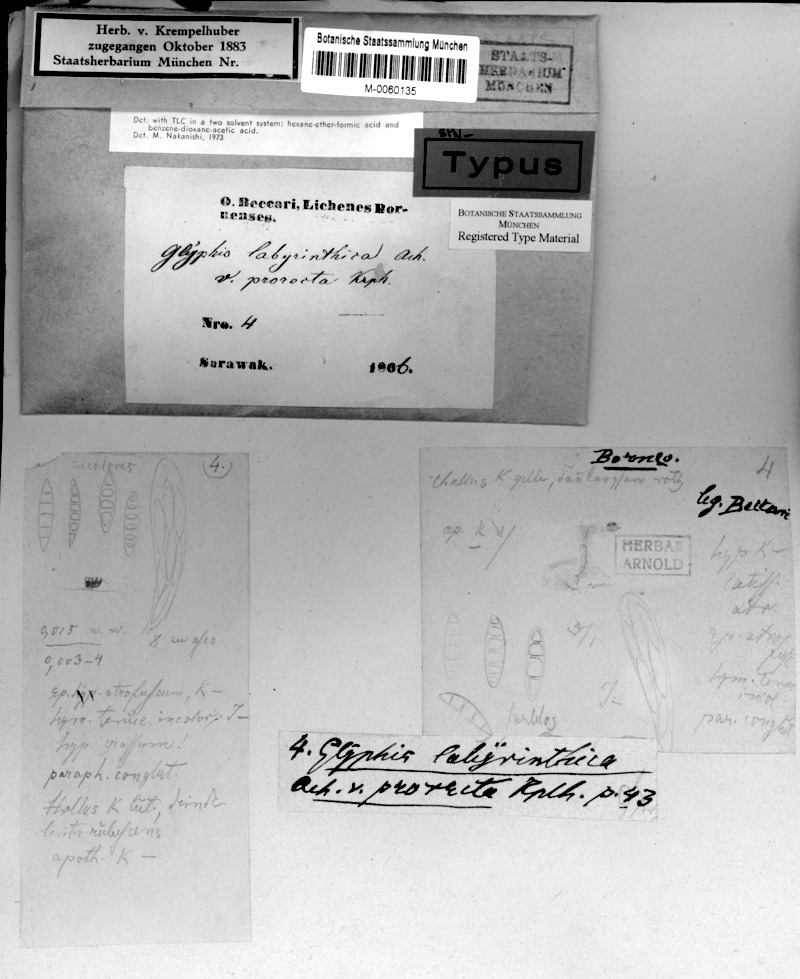 Herb. v. Krempelhuber
zugegangen Oktober 1883
Staatsherbarium München Nr.
Botanische Staatssammlung München
M-0060135
STAATS-
HERBARIUM
MÜNCHEN
Det. with TLC in a two solvent system: hexane-ether-formic acid and
benzene-dioxane-acetic acid.
Det. M. Nakanishi, 1973
syn-
Typus
BOTANISCHE STAATSSAMMLUNG
MÜNCHEN
Registered Type Material
O. Beccari, Lichenes Bor-
neenses.
Glyphis labyrinthica Ach.
v. prorecta Krph.
Nro. 4
Sarawak. 1866.
incolores 4.
0,015
0,003-4
K -
hym. tenue, incolor, J-
hyp. crassum!
paraph. conglut.
thallus K lut., deinde
leviter rubescens
apoth. K -
Borneo. 4
thallus K gelb, dann langsam roth
leg. Beccari
HERBAR
ARNOLD
hyp K-
latiss.
atr.
hym. tenue
incol
par. conglut
J-
farblos
4. Glyphis labyrinthica
Ach. v. prorecta Kplh. p. 43